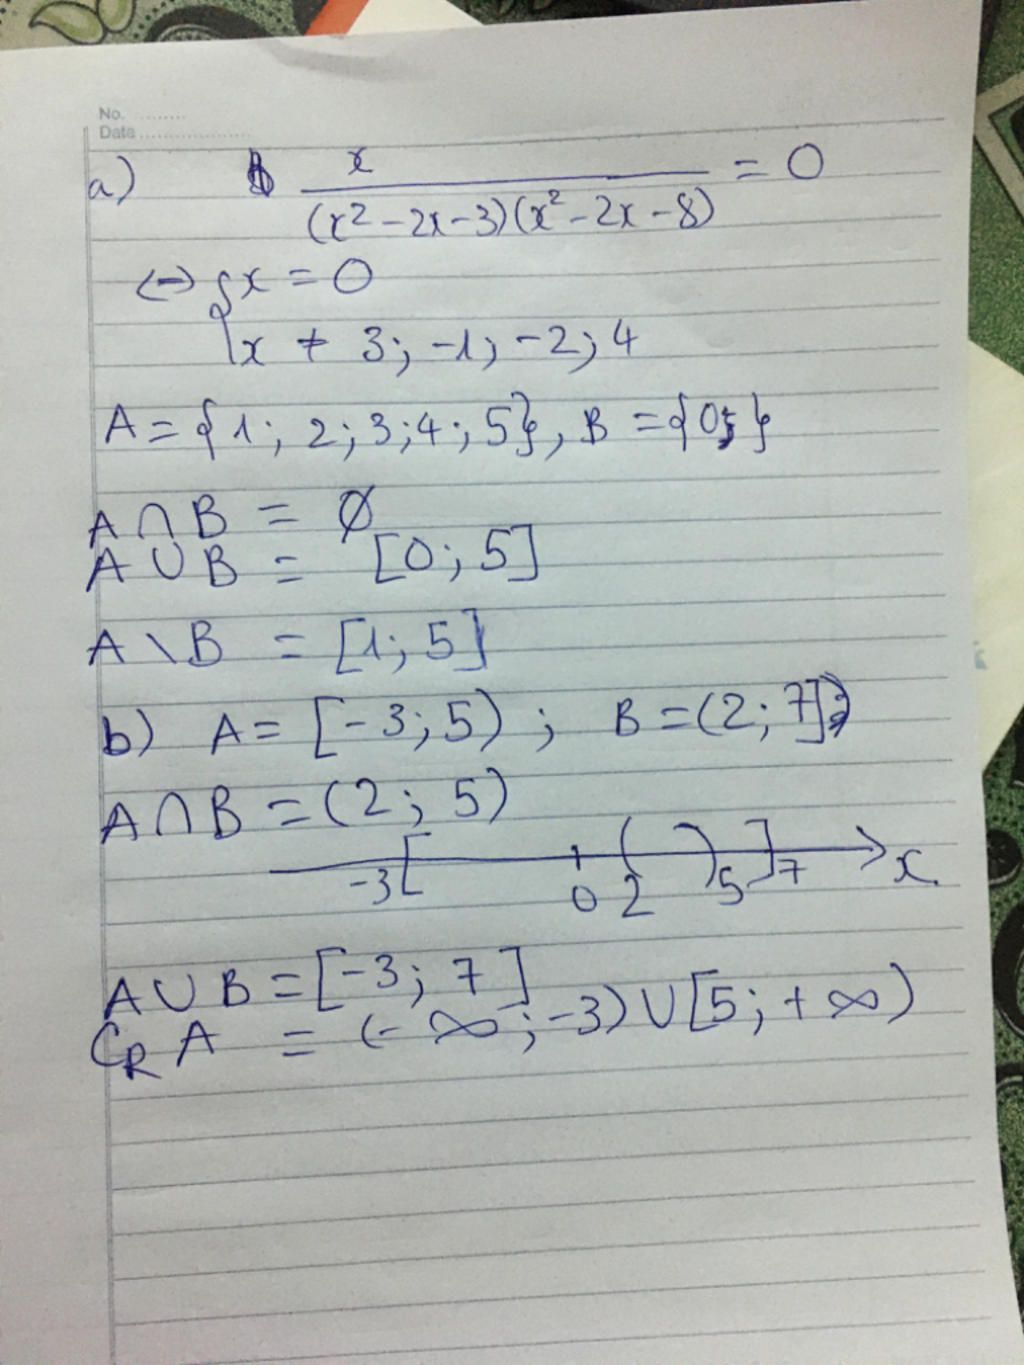 No. ..........
Date ....................
a) x / (x² - 2x - 3)(x² - 2x - 8) = 0
<-> { x = 0
x ≠ 3; -1; -2; 4
A = {1; 2; 3; 4; 5}, B = {0}
A ∩ B = ∅
A ∪ B = [0; 5]
A \ B = [1; 5]
b) A = [-3; 5) ; B = (2; 7]
A ∩ B = (2; 5)
-3 [ 0 ( 2 ) 5 ] 7 x
A ∪ B = [-3; 7]
C_R A = (-∞; -3) ∪ [5; +∞)